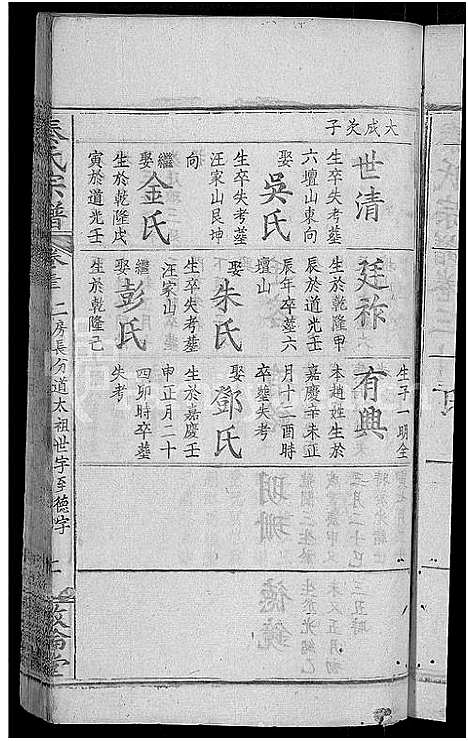 大成公子
世清
生卒失考墓
六壇山東向
娶吳氏
生卒失考墓
汪家山艮坤
向
繼娶金氏
生於乾隆戊
寅於道光壬
廷祚
生於乾隆甲
辰於道光壬
辰年卒墓六
壇山
娶朱氏
生卒失考墓
汪家山
繼娶彭氏
生於乾隆己
生子一明全
有興
本趙姓生於
嘉慶辛未正
月十二酉時
卒墓失考
娶鄧氏
生於嘉慶壬
申正月二十
四卯時卒墓
失考
秦氏宗譜
卷三
二房長分道太祖世字至德字
敦倫堂